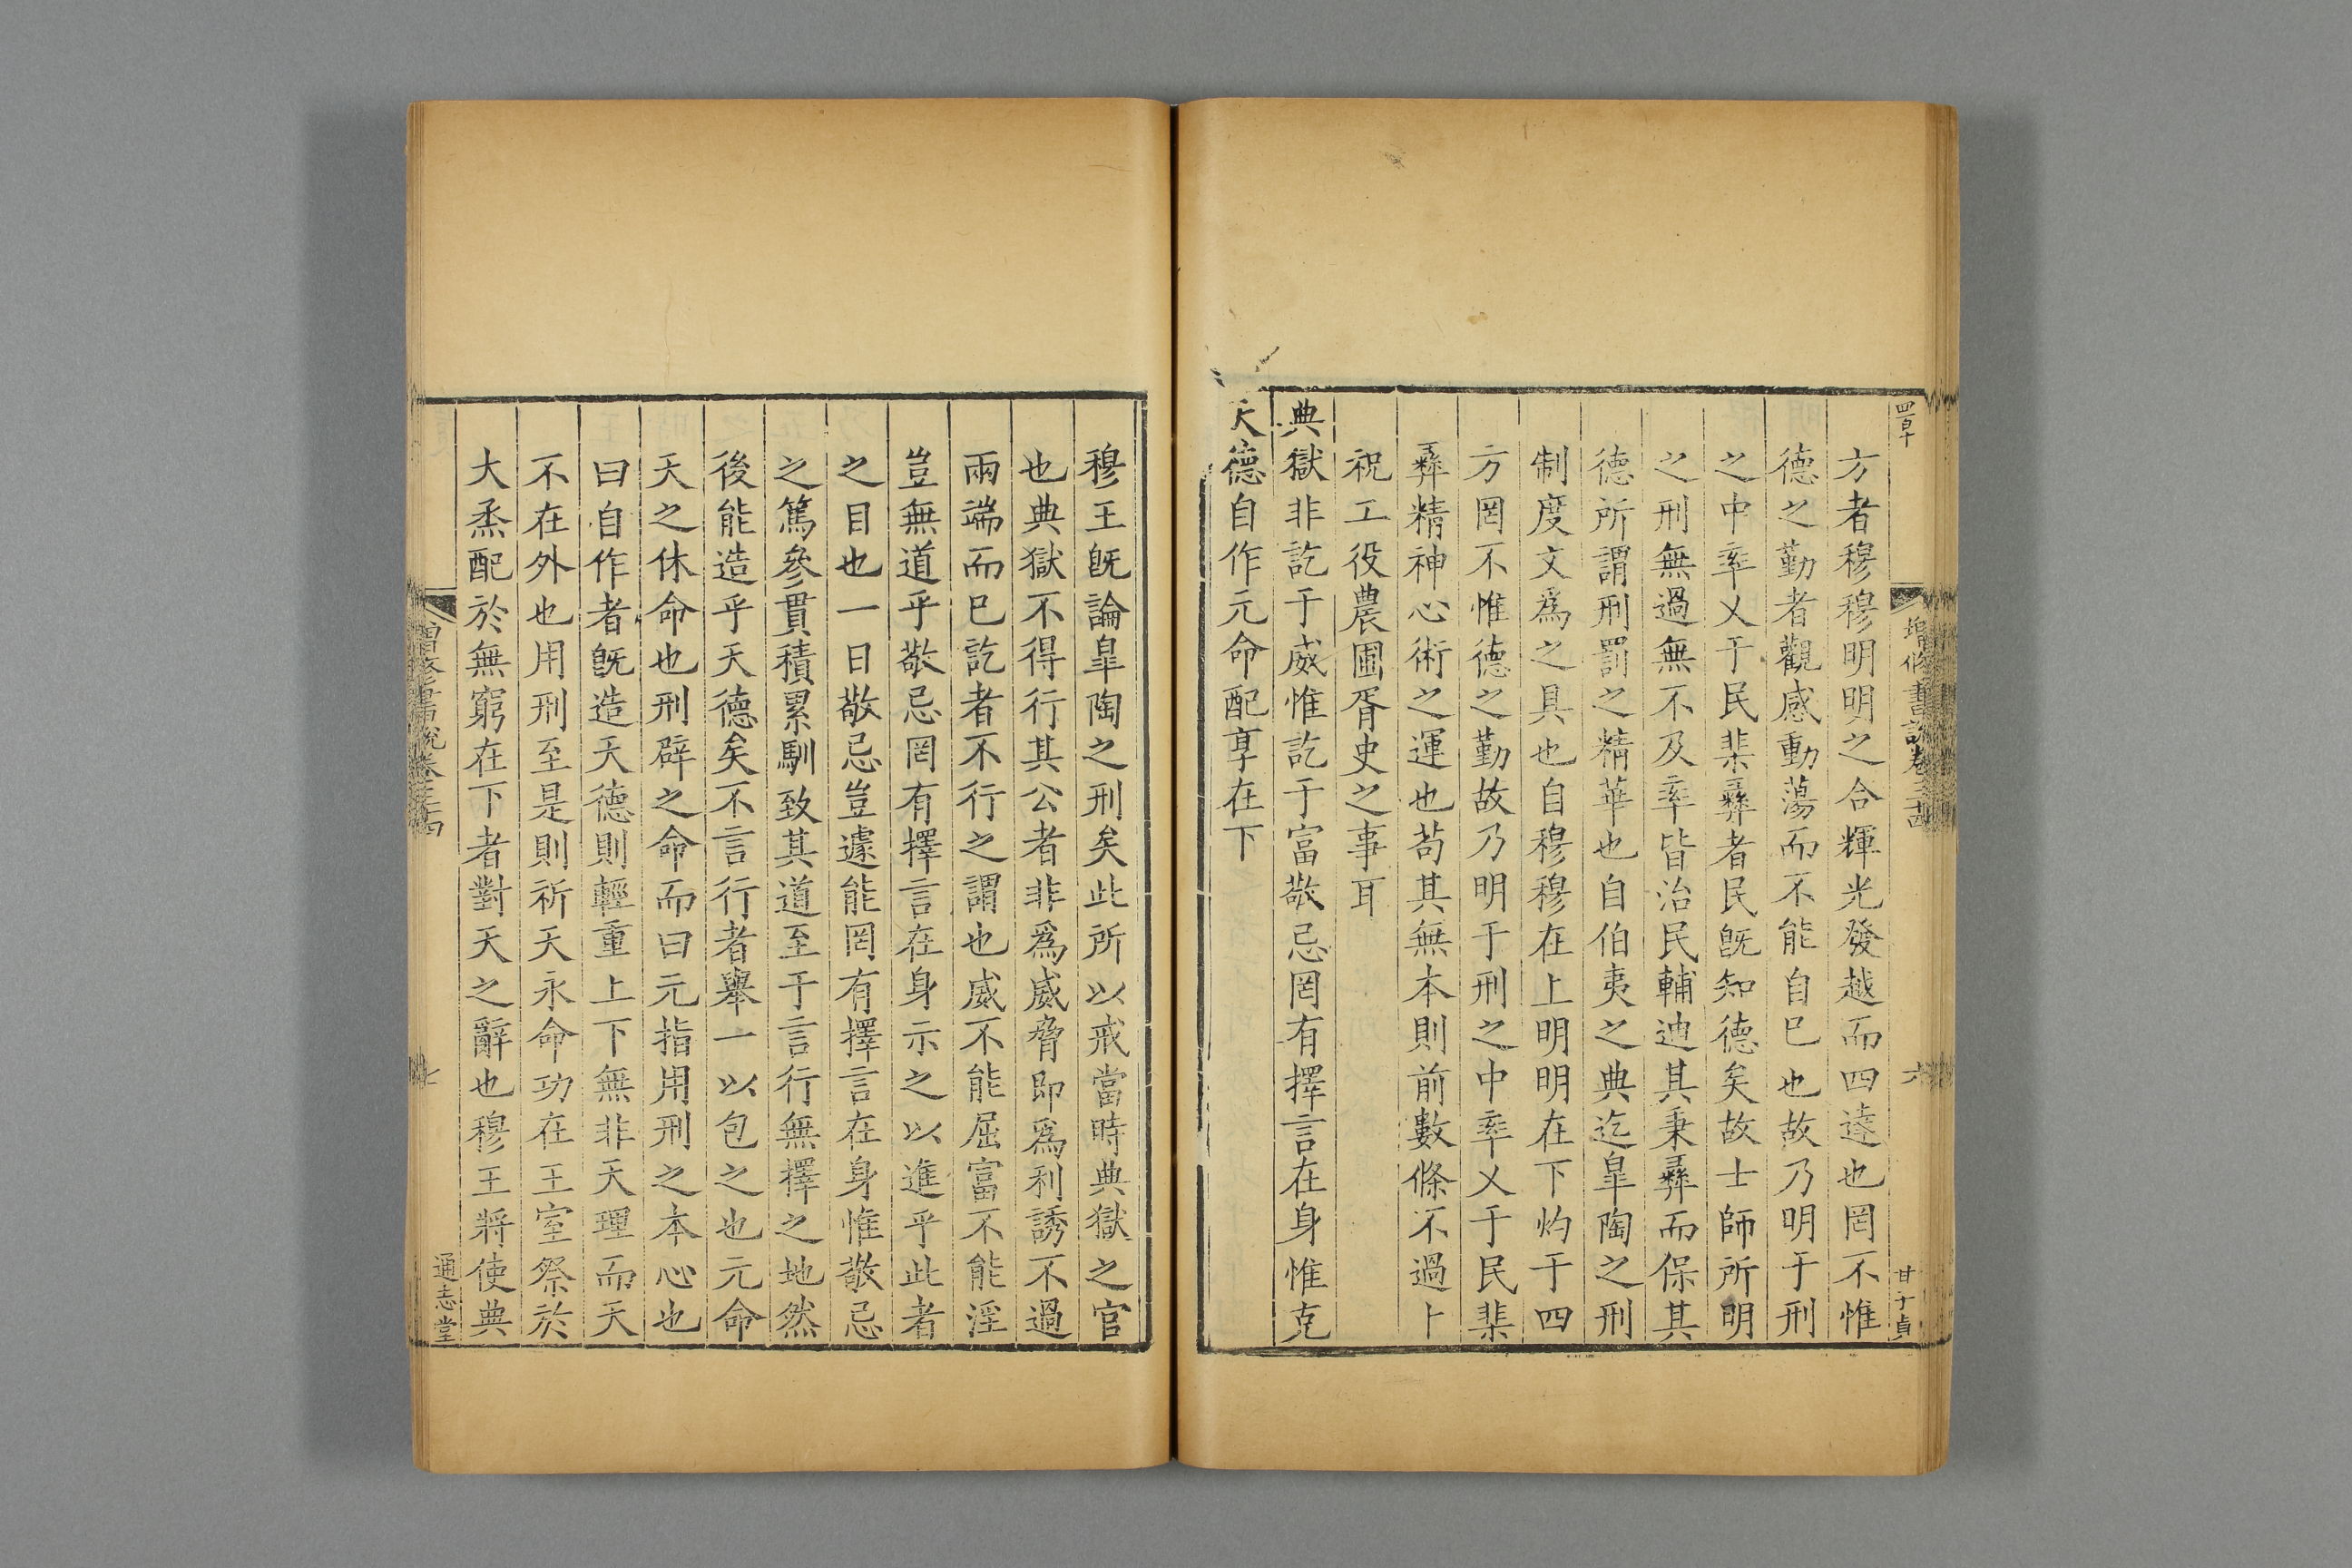 四百十
增修書說卷三十四
六
甘子貞
方者穆穆明明之合輝光發越而四達也罔不惟
德之勤者觀感動蕩而不能自已也故乃明于刑
之中率乂于民棐彞者民旣知德矣故士師所明
之刑無過無不及率皆治民輔迪其秉彞而保其
德所謂刑罰之精華也自伯夷之典迄臯陶之刑
制度文爲之具也自穆穆在上明明在下灼于四
方罔不惟德之勤故乃明于刑之中率乂于民棐
彞精神心術之運也苟其無本則前數條不過卜
祝工役農圃胥史之事耳
典獄非訖于威惟訖于富敬忌罔有擇言在身惟克
天德自作元命配享在下
穆王旣論臯陶之刑矣此所以戒當時典獄之官
也典獄不得行其公者非爲威脅即爲利誘不過
兩端而已訖者不行之謂也威不能屈富不能淫
豈無道乎敬忌罔有擇言在身示之以進乎此者
之目也一日敬忌豈遽能罔有擇言在身惟敬忌
之篤參貫積累馴致其道至于言行無擇之地然
後能造乎天德矣不言行者舉一以包之也元命
天之休命也刑辟之命而曰元指用刑之本心也
曰自作者旣造天德則輕重上下無非天理而天
不在外也用刑至是則祈天永命功在王室祭於
大烝配於無窮在下者對天之辭也穆王將使典
增修書說卷三十四
七
通志堂